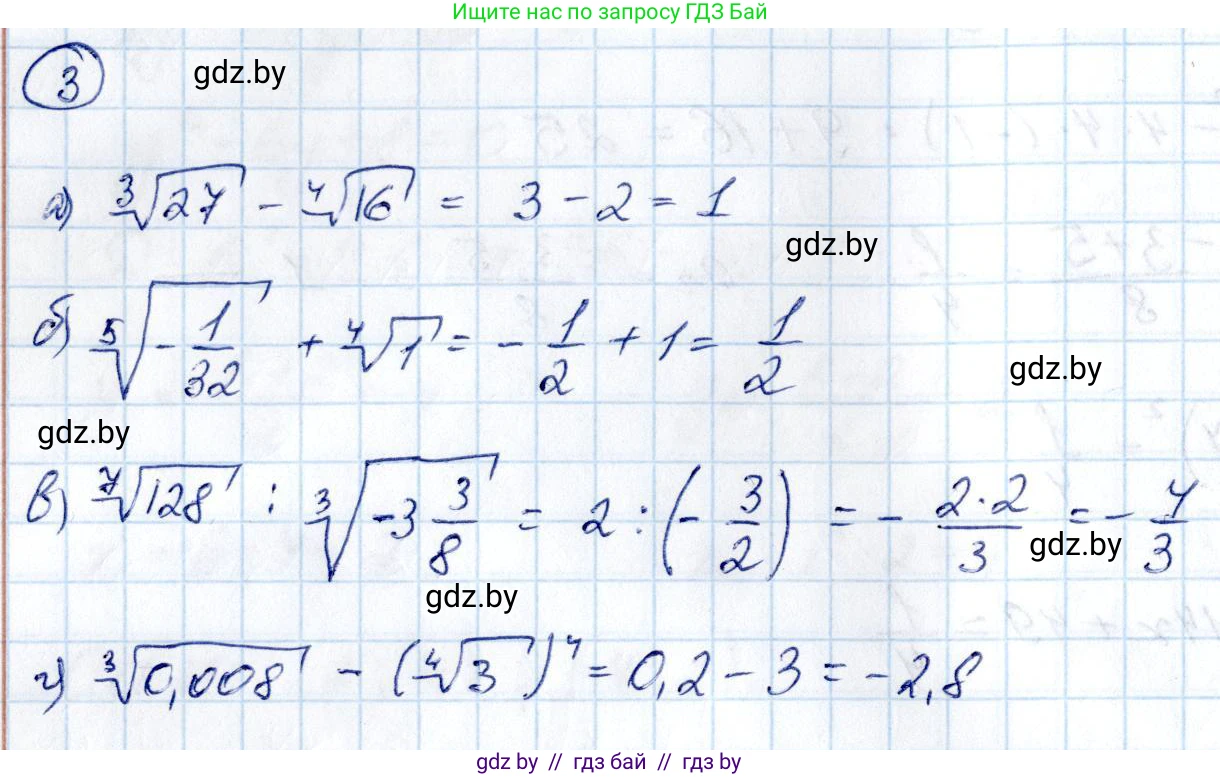 Ищите нас по запросу ГДЗ Бай
3 gdz.by
а) ∛27 − ∜16 = 3 − 2 = 1
gdz.by
б) ⁵√(−1/32) + ∜1 = −1/2 + 1 = 1/2
gdz.by
gdz.by
в) ⁷√128 : ∛(−3 3/8) = 2 : (−3/2) = −2·2/3 = −4/3
gdz.by
gdz.by
г) ∛0,008 − (∜3)⁴ = 0,2 − 3 = −2,8
gdz by // гдз бай // гдз by